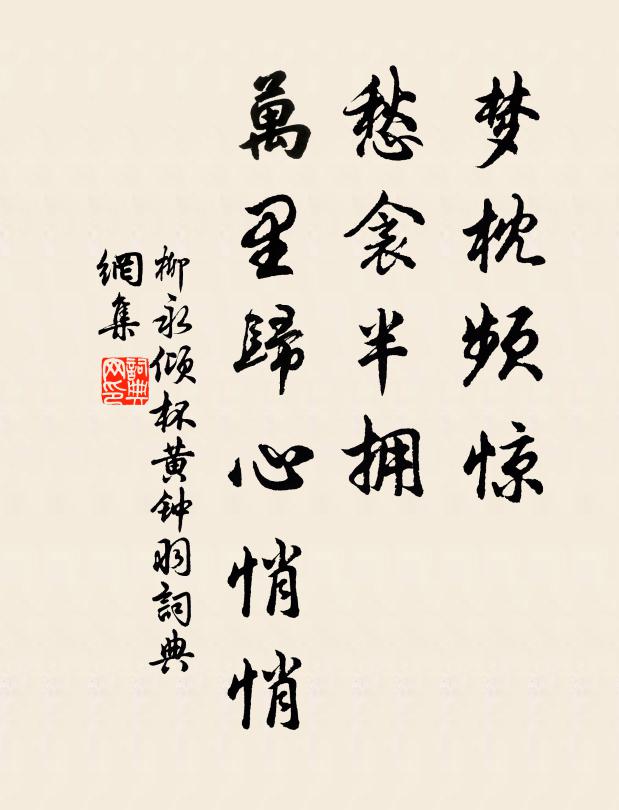 梦枕频惊
愁衾半拥
萬里歸心悄悄
柳永傾杯黄钟羽詞典
網集
詞典
网印